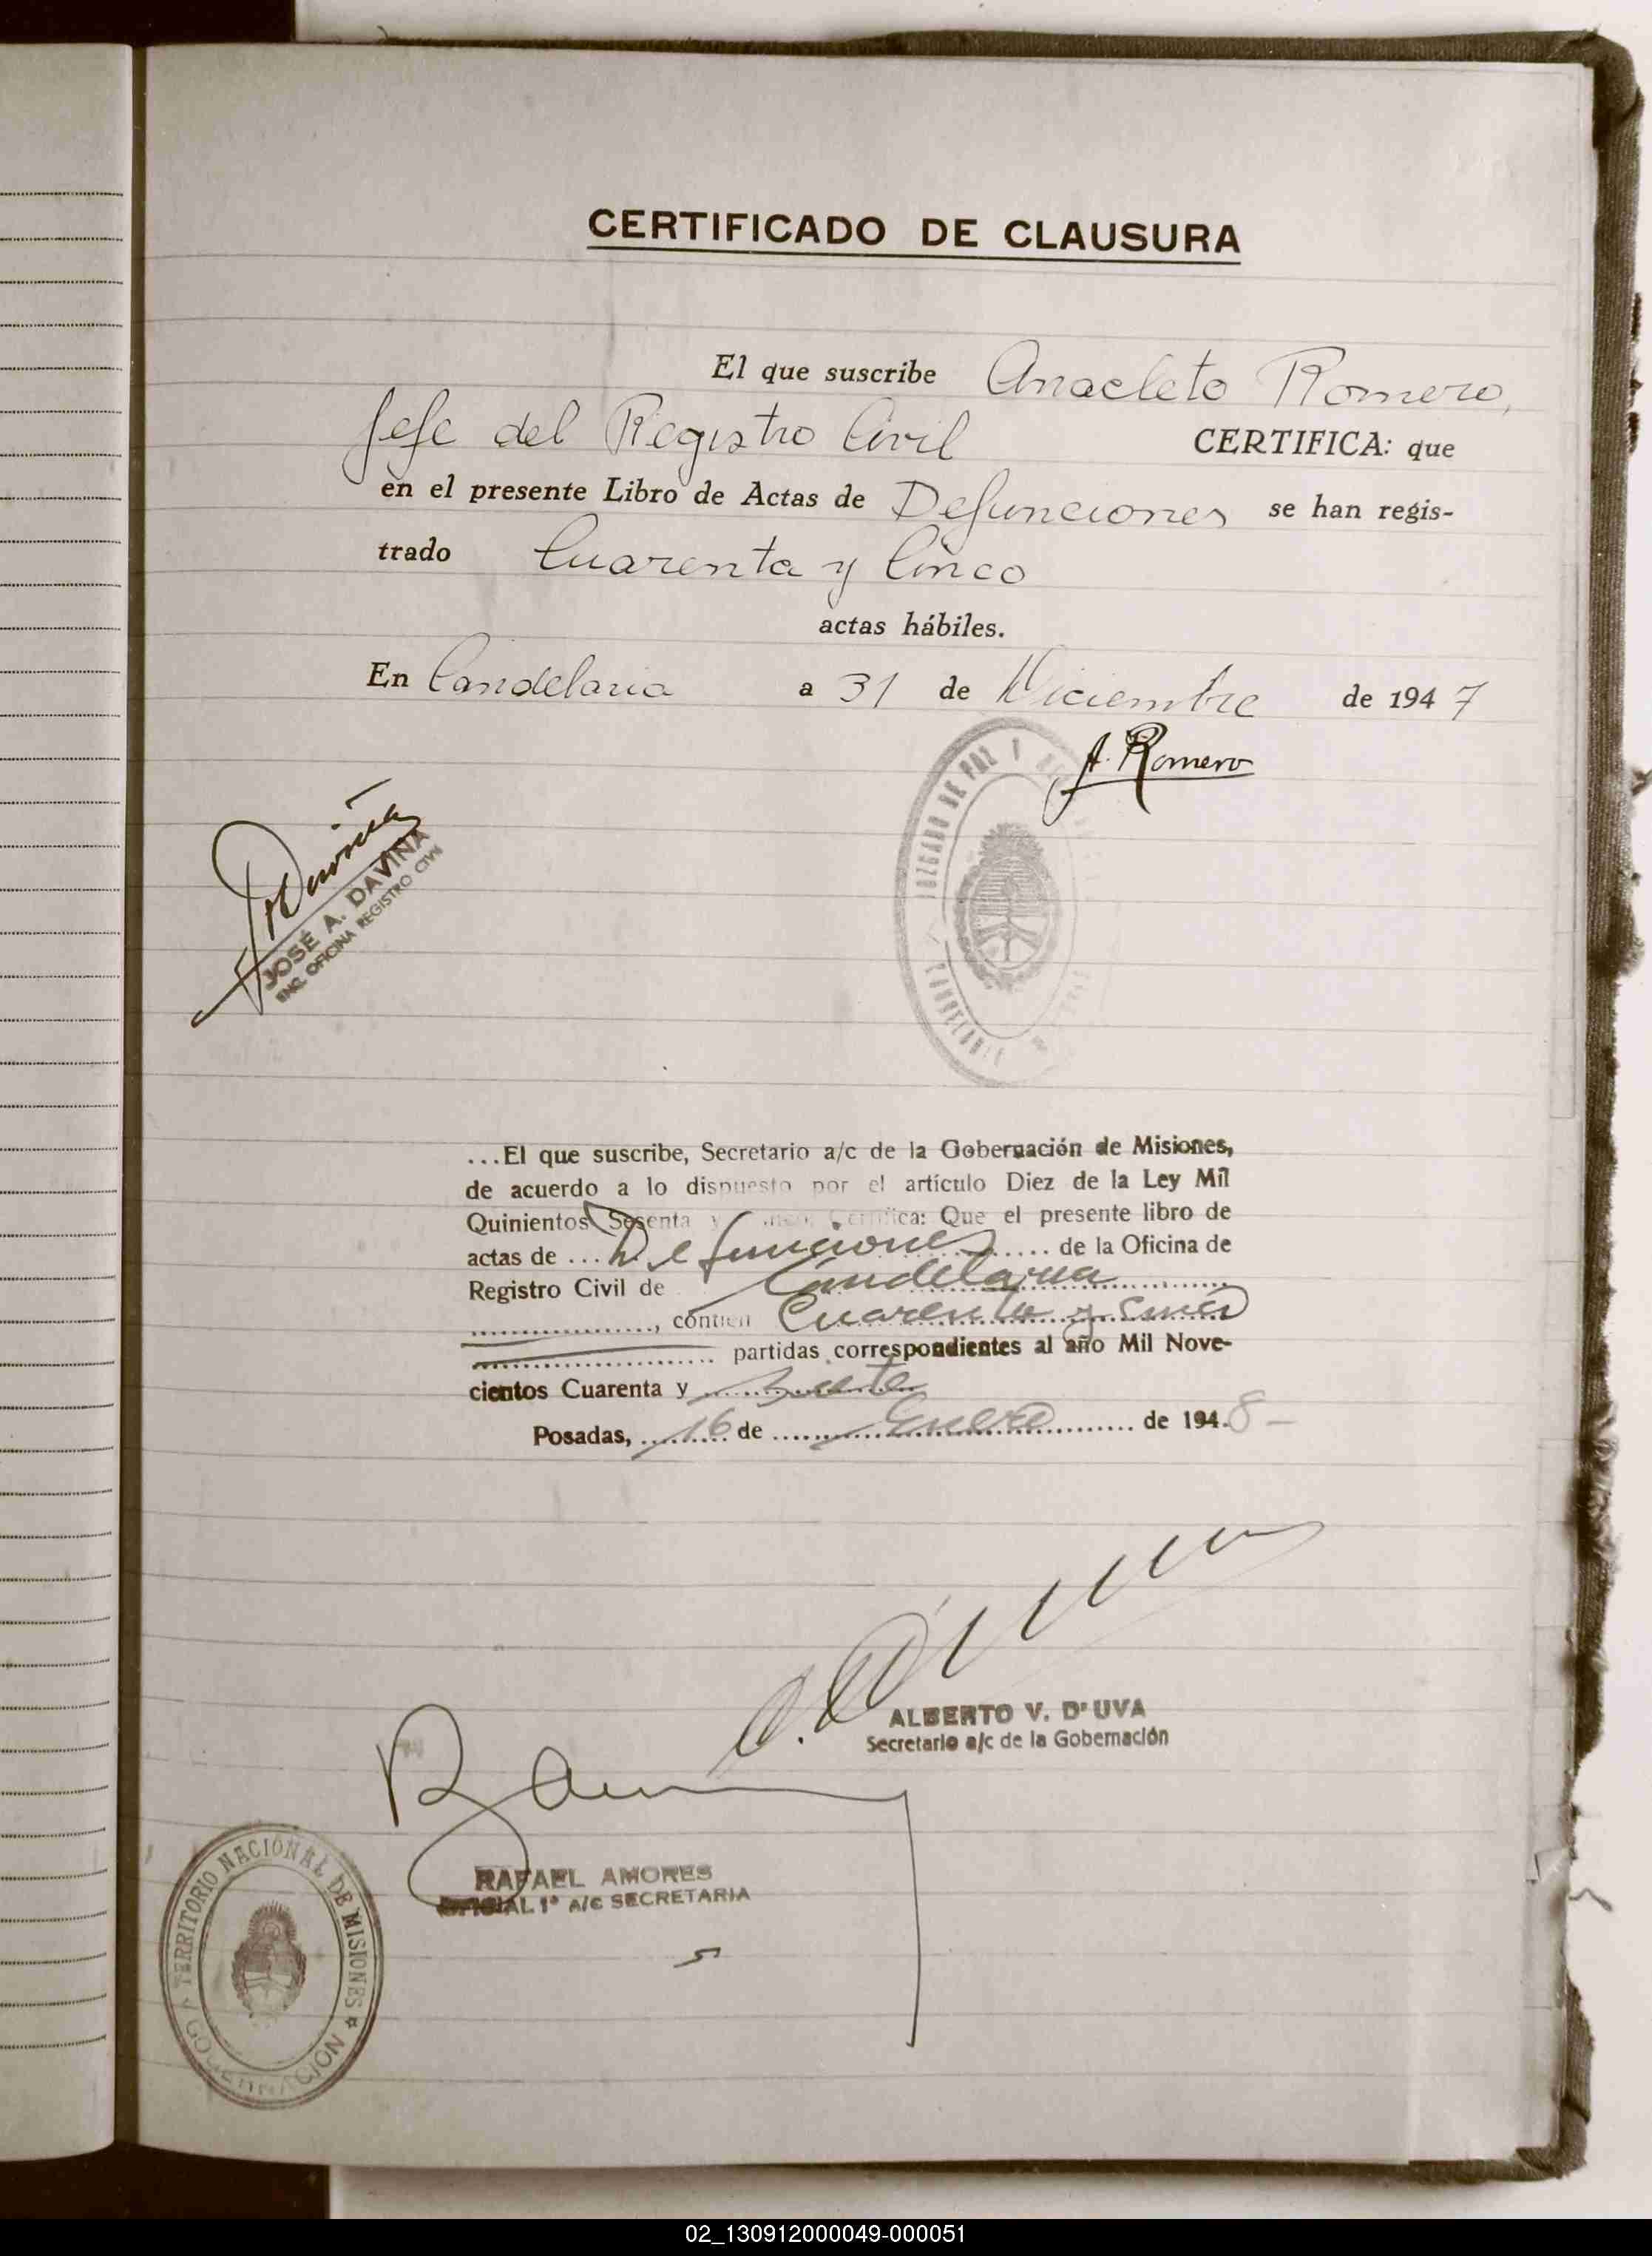 CERTIFICADO DE CLAUSURA
El que suscribe Anacleto Romero,
Jefe del Registro Civil CERTIFICA: que
en el presente Libro de Actas de Defunciones se han regis-
trado Cuarenta y Cinco
actas hábiles.
En Candelaria a 31 de Diciembre de 1947
A. Romero
JUZGADO DE PAZ Y
CANDELARIA
Daviña
JOSÉ A. DAVIÑA
ENC. OFICINA REGISTRO CIVIL
...El que suscribe, Secretario a/c de la Gobernación de Misiones,
de acuerdo a lo dispuesto por el artículo Diez de la Ley Mil
Quinientos Sesenta y Certifica: Que el presente libro de
actas de ... Defunciones .... de la Oficina de
Registro Civil de Candelaria
................, contien Cuarenta y cinco
...................... partidas correspondientes al año Mil Nove-
cientos Cuarenta y siete
Posadas, 16 de Enero de 194.8-
ALBERTO V. D'UVA
Secretario a/c de la Gobernación
RAFAEL AMORES
OFICIAL 1º A/C SECRETARIA
TERRITORIO NACIONAL DE MISIONES
GOBERNACION
02_130912000049-000051